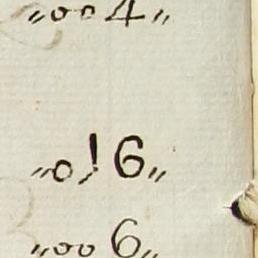 „004„
„016„
„006„